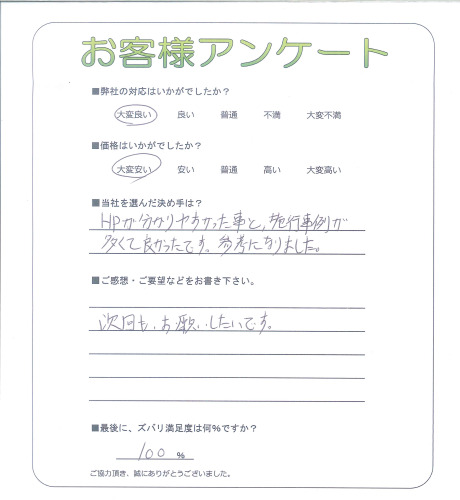 お客様アンケート
■弊社の対応はいかがでしたか？
大変良い 良い 普通 不満 大変不満
■価格はいかがでしたか？
大変安い 安い 普通 高い 大変高い
■当社を選んだ決め手は？
HPが分かりやすかった事と、施行事例が
多くて良かったです。参考になりました。
■ご感想・ご要望などをお書き下さい。
次回も、お願いしたいです。
■最後に、ズバリ満足度は何％ですか？
100 ％
ご協力頂き、誠にありがとうございました。